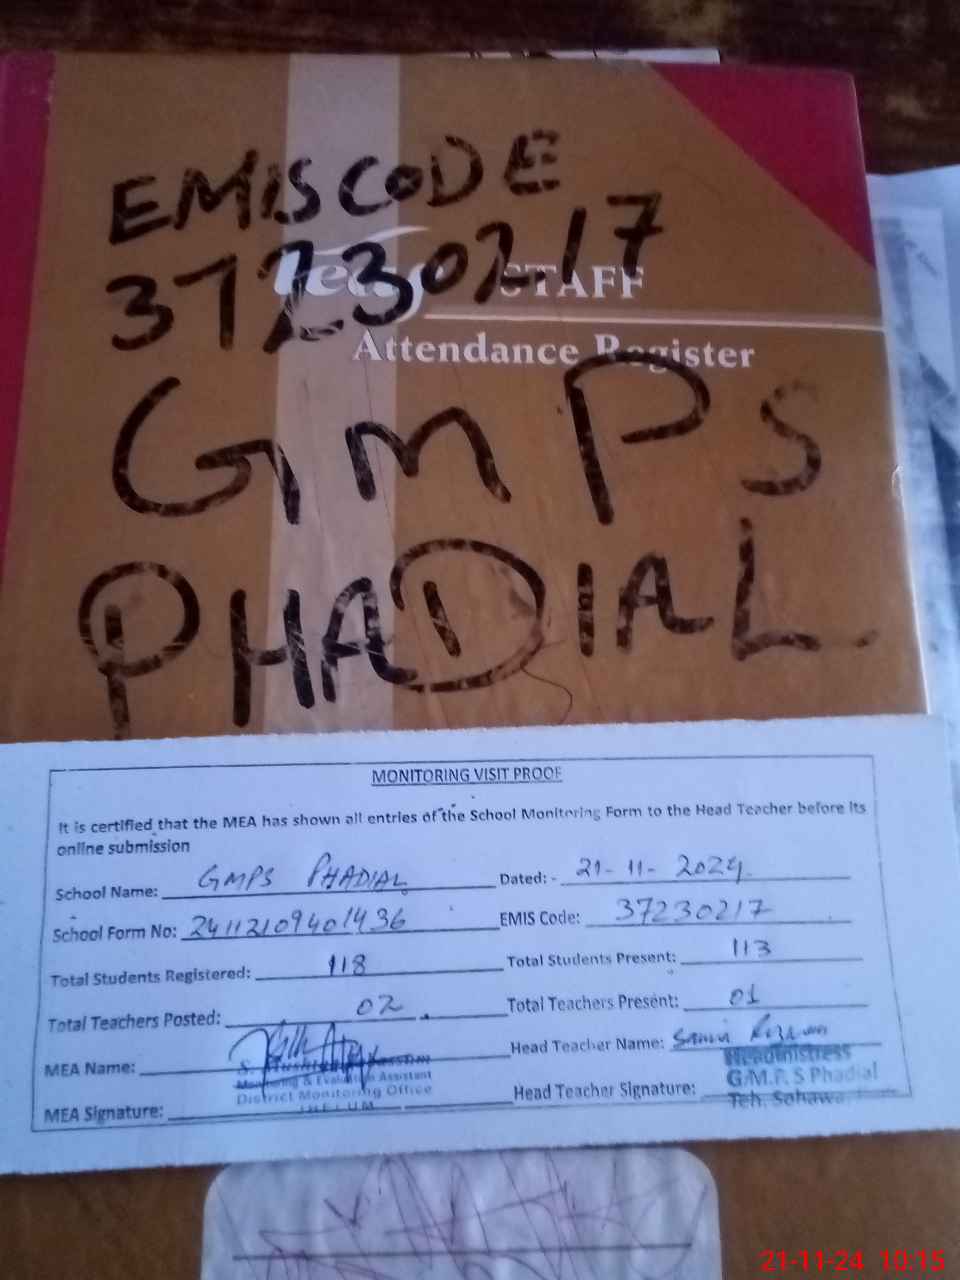 EMIS CODE
37230217
STAFF
Attendance Register
GMPS
PHADIAL
MONITORING VISIT PROOF
It is certified that the MEA has shown all entries of the School Monitoring Form to the Head Teacher before its
online submission
School Name: GMPS PHADIAL Dated: - 21-11-2024
School Form No: 24112109401436 EMIS Code: 37230217
Total Students Registered: 118 Total Students Present: 113
Total Teachers Posted: 02 Total Teachers Present: 01
MEA Name: Head Teacher Name:
Monitoring & Evaluation Assistant
District Monitoring Office
JHELUM
Headmistress
G.M.P.S Phadial
Teh. Sohawa,
MEA Signature: Head Teacher Signature:
21-11-24 10:15